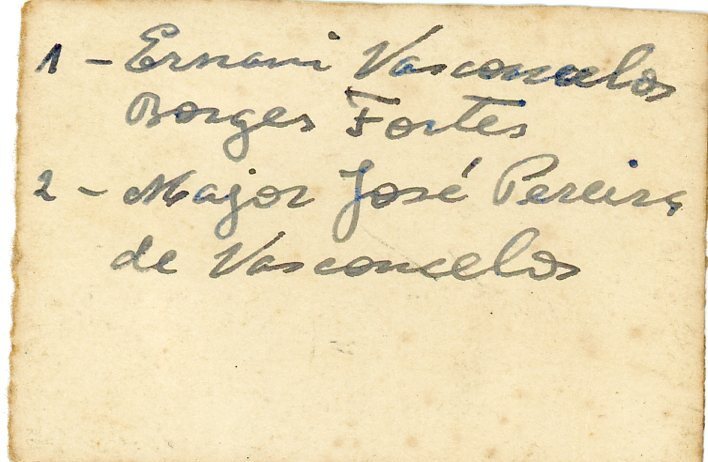 1 - Ernani Vasconcelos
Borges Fortes
2 - Major José Pereira
de Vasconcelos